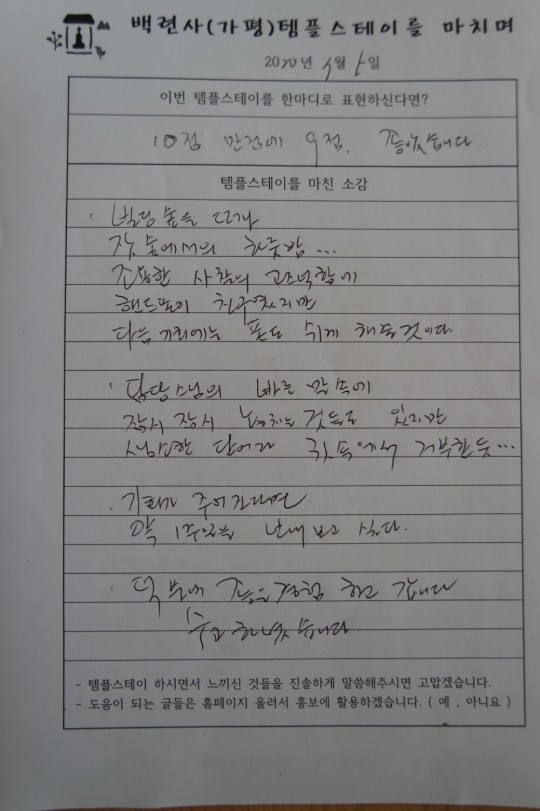 백련사(가평)템플스테이를 마치며
2020년 4월 5일
이번 템플스테이를 한마디로 표현하신다면?
10점 만점에 9점. 좋았습니다.
템플스테이를 마친 소감
빌딩숲을 떠나
잣 숲에서의 하룻밤...
조용한 사찰의 고즈넉함에
핸드폰이 친구였지만
다음 기회에는 폰도 쉬게 해줄것이다
담당스님의 빠른 말속에
잠시 잠시 놓치는 것들도 있지만
생소한 단어라 귓속에서 거부한듯...
기회가 주어진다면
약 1주일을 보내보고 싶다.
덕분에 좋은경험 하고 갑니다
수고하셨습니다.
- 템플스테이 하시면서 느끼신 것들을 진솔하게 말씀해주시면 고맙겠습니다.
- 도움이 되는 글들은 홈페이지 올려서 홍보에 활용하겠습니다. ( 예 , 아니요 )